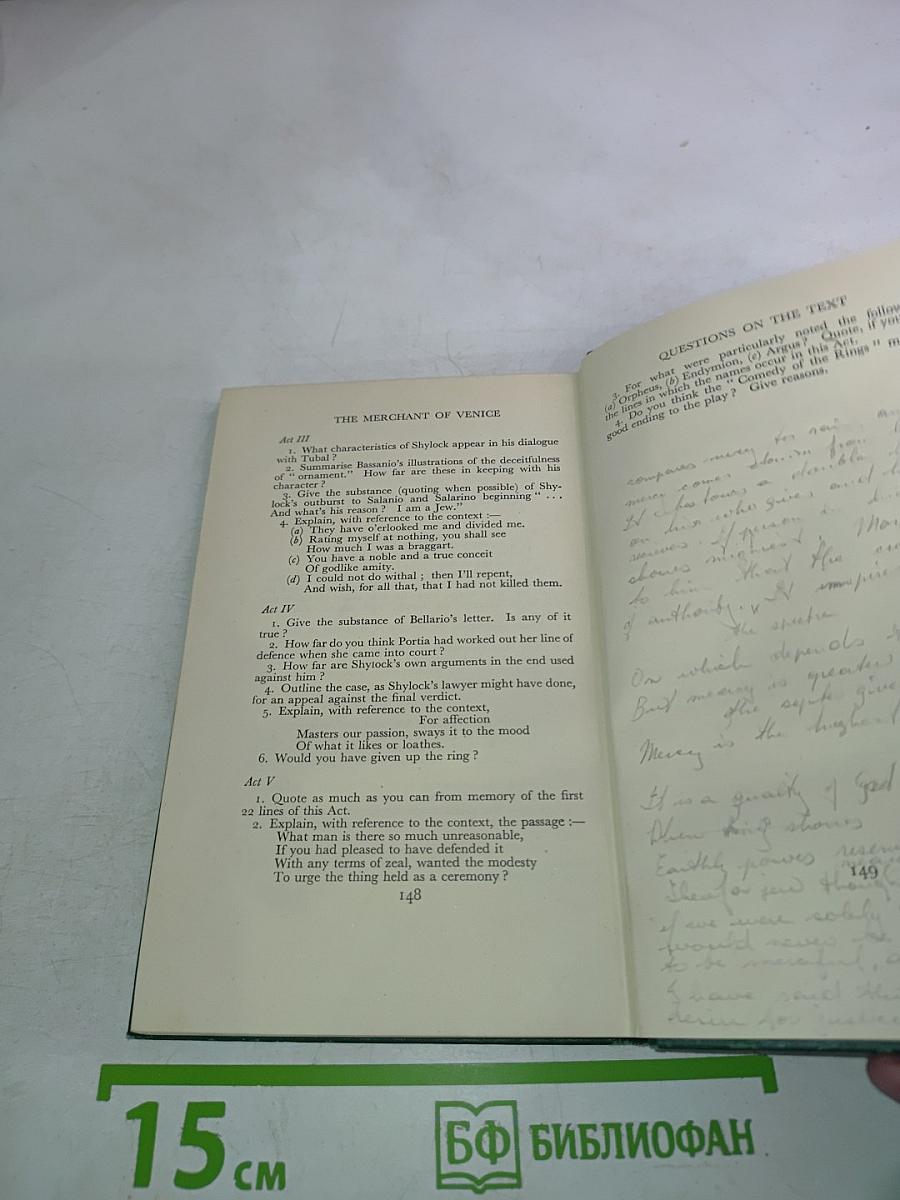 THE MERCHANT OF VENICE
Act III
1. What characteristics of Shylock appear in his dialogue
with Tubal ?
2. Summarise Bassanio's illustrations of the deceitfulness
of " ornament." How far are these in keeping with his
character ?
3. Give the substance (quoting when possible) of Shy-
lock's outburst to Salanio and Salarino beginning " . . .
And what's his reason ? I am a Jew."
4. Explain, with reference to the context :—
(a) They have o'erlooked me and divided me.
(b) Rating myself at nothing, you shall see
How much I was a braggart.
(c) You have a noble and a true conceit
Of godlike amity.
(d) I could not do withal ; then I'll repent,
And wish, for all that, that I had not killed them.
Act IV
1. Give the substance of Bellario's letter. Is any of it
true ?
2. How far do you think Portia had worked out her line of
defence when she came into court ?
3. How far are Shylock's own arguments in the end used
against him ?
4. Outline the case, as Shylock's lawyer might have done,
for an appeal against the final verdict.
5. Explain, with reference to the context,
For affection
Masters our passion, sways it to the mood
Of what it likes or loathes.
6. Would you have given up the ring ?
Act V
1. Quote as much as you can from memory of the first
22 lines of this Act.
2. Explain, with reference to the context, the passage :—
What man is there so much unreasonable,
If you had pleased to have defended it
With any terms of zeal, wanted the modesty
To urge the thing held as a ceremony ?
148
QUESTIONS ON THE TEXT
3. For what were particularly noted the
(a) Orpheus, (b) Endymion, (c) Argus ? Quote, if you
the lines in which the names occur in this Act.
4. Do you think the " Comedy of the Rings "
good ending to the play ? Give reasons.
compares mercy for rain
mercy comes down from
It has a double
on him who gives and
shows
to him that the
of authority. It
the
On which depends
But mercy is greater
the
Mercy is the
It is a quality of God
When shows
Earthly powers
149
if we were solely
would never
to be merciful,
I have said
desire for justice
15 см
БФ БИБЛИОФАН